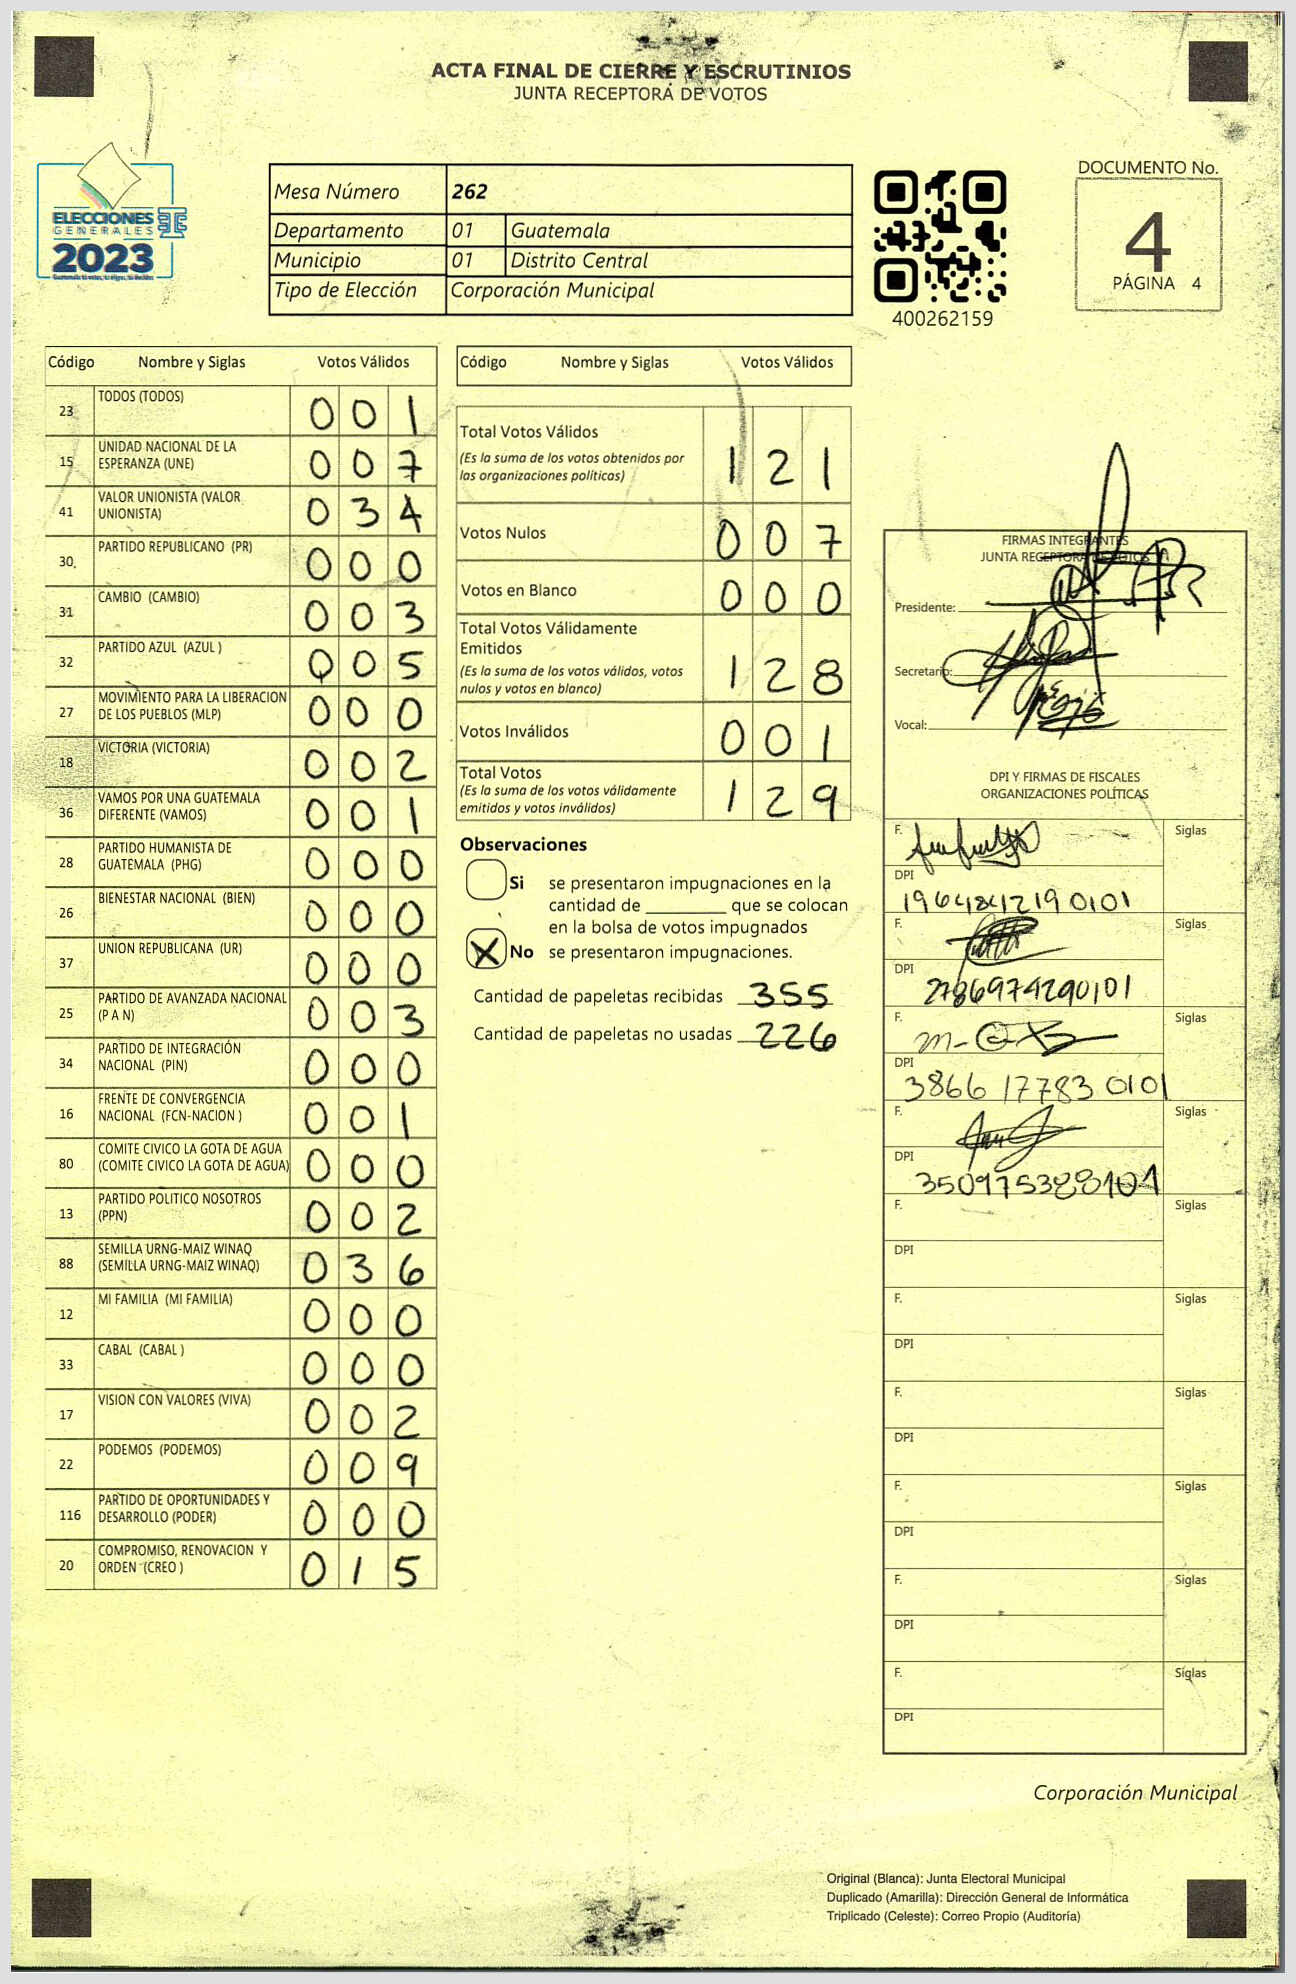 ACTA FINAL DE CIERRE Y ESCRUTINIOS
JUNTA RECEPTORA DE VOTOS
ELECCIONES
GENERALES
2023
Mesa Número 262
Departamento 01 Guatemala
Municipio 01 Distrito Central
Tipo de Elección Corporación Municipal
400262159
DOCUMENTO No.
4
PÁGINA 4
Código Nombre y Siglas Votos Válidos
23 TODOS (TODOS) 0 0 1
15 UNIDAD NACIONAL DE LA
ESPERANZA (UNE) 0 0 7
41 VALOR UNIONISTA (VALOR
UNIONISTA) 0 3 4
30 PARTIDO REPUBLICANO (PR) 0 0 0
31 CAMBIO (CAMBIO) 0 0 3
32 PARTIDO AZUL (AZUL ) 0 0 5
27 MOVIMIENTO PARA LA LIBERACION
DE LOS PUEBLOS (MLP) 0 0 0
18 VICTORIA (VICTORIA) 0 0 2
36 VAMOS POR UNA GUATEMALA
DIFERENTE (VAMOS) 0 0 1
28 PARTIDO HUMANISTA DE
GUATEMALA (PHG) 0 0 0
26 BIENESTAR NACIONAL (BIEN) 0 0 0
37 UNION REPUBLICANA (UR) 0 0 0
25 PARTIDO DE AVANZADA NACIONAL
(P A N) 0 0 3
34 PARTIDO DE INTEGRACIÓN
NACIONAL (PIN) 0 0 0
16 FRENTE DE CONVERGENCIA
NACIONAL (FCN-NACION ) 0 0 1
80 COMITE CIVICO LA GOTA DE AGUA
(COMITE CIVICO LA GOTA DE AGUA) 0 0 0
13 PARTIDO POLITICO NOSOTROS
(PPN) 0 0 2
88 SEMILLA URNG-MAIZ WINAQ
(SEMILLA URNG-MAIZ WINAQ) 0 3 6
12 MI FAMILIA (MI FAMILIA) 0 0 0
33 CABAL (CABAL ) 0 0 0
17 VISION CON VALORES (VIVA) 0 0 2
22 PODEMOS (PODEMOS) 0 0 9
116 PARTIDO DE OPORTUNIDADES Y
DESARROLLO (PODER) 0 0 0
20 COMPROMISO, RENOVACION Y
ORDEN (CREO ) 0 1 5
Código Nombre y Siglas Votos Válidos
Total Votos Válidos
(Es la suma de los votos obtenidos por
las organizaciones políticas) 1 2 1
Votos Nulos 0 0 7
Votos en Blanco 0 0 0
Total Votos Válidamente
Emitidos
(Es la suma de los votos válidos, votos
nulos y votos en blanco) 1 2 8
Votos Inválidos 0 0 1
Total Votos
(Es la suma de los votos válidamente
emitidos y votos inválidos) 1 2 9
Observaciones
Si se presentaron impugnaciones en la
cantidad de ________ que se colocan
en la bolsa de votos impugnados
X No se presentaron impugnaciones.
Cantidad de papeletas recibidas 355
Cantidad de papeletas no usadas 226
FIRMAS INTEGRANTES
JUNTA RECEPTORA DE VOTOS
Presidente:
Secretario:
Vocal:
DPI Y FIRMAS DE FISCALES
ORGANIZACIONES POLÍTICAS
F. Siglas
DPI
1964842190101
F. Siglas
DPI
2786974290101
F. Siglas
DPI
3866 17783 0101
F. Siglas
DPI
F. Siglas
DPI
F. Siglas
DPI
F. Siglas
DPI
F. Siglas
DPI
F. Siglas
DPI
F. Siglas
DPI
Corporación Municipal
Original (Blanca): Junta Electoral Municipal
Duplicado (Amarilla): Dirección General de Informática
Triplicado (Celeste): Correo Propio (Auditoría)